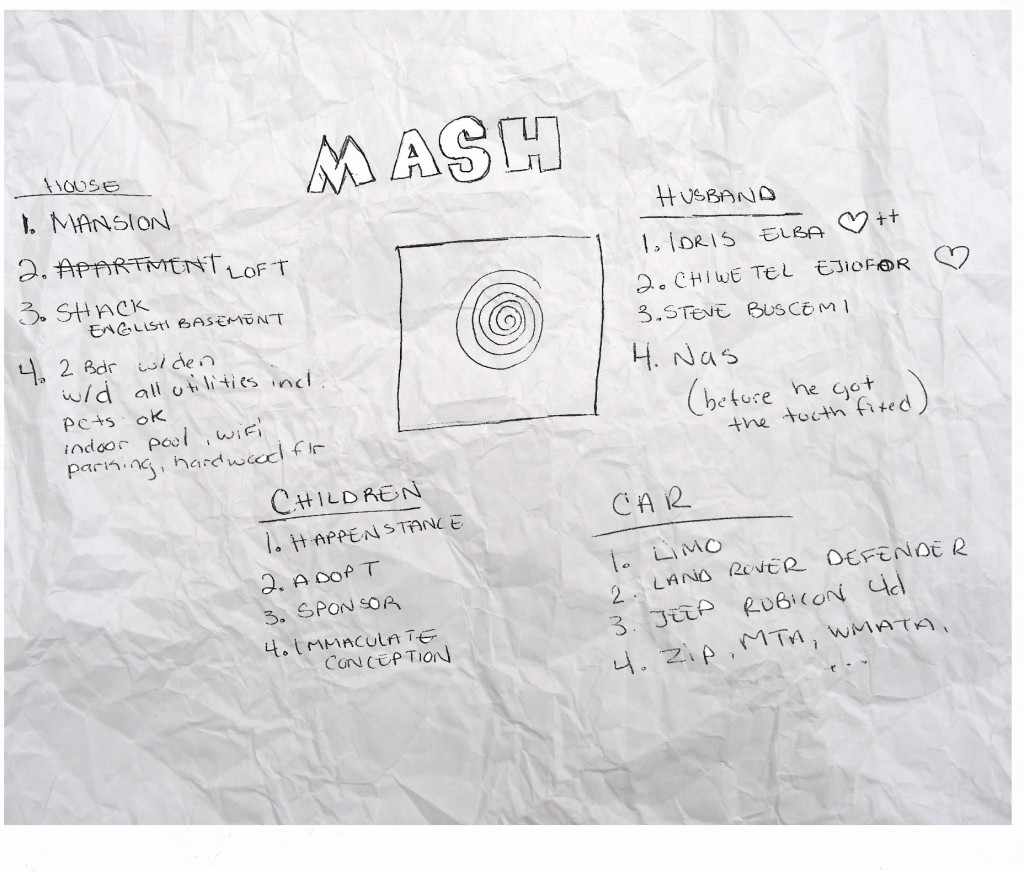 MASH
HOUSE
1. MANSION
2. APARTMENT LOFT
3. SHACK
ENGLISH BASEMENT
4. 2 Bdr w/den
w/d all utilities incl.
pets ok
indoor pool, wifi
parking, hardwood flr
HUSBAND
1. IDRIS ELBA ♡++
2. CHIWETEL EJIOFOR ♡
3. STEVE BUSCEMI
4. Nas
(before he got
the tooth fixed)
CHILDREN
1. HAPPENSTANCE
2. ADOPT
3. SPONSOR
4. IMMACULATE
CONCEPTION
CAR
1. LIMO
2. LAND ROVER DEFENDER
3. JEEP RUBICON 4d
4. ZIP, MTA, WMATA,
...